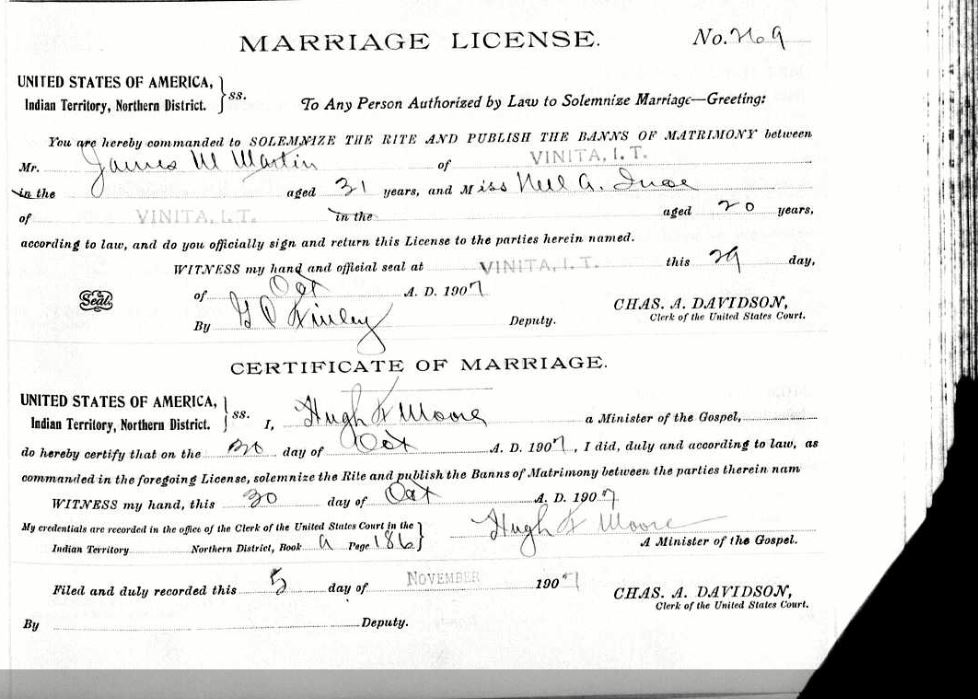 MARRIAGE LICENSE. No. 269
UNITED STATES OF AMERICA,
Indian Territory, Northern District. } ss.
To Any Person Authorized by Law to Solemnize Marriage—Greeting:
You are hereby commanded to SOLEMNIZE THE RITE AND PUBLISH THE BANNS OF MATRIMONY between
Mr. James M Martin of VINITA, I. T.
in the aged 31 years, and Miss Nell A.
of VINITA, I. T. in the aged 20 years,
according to law, and do you officially sign and return this License to the parties herein named.
WITNESS my hand and official seal at VINITA, I. T. this 29 day,
of Oct A. D. 1907
Seal.
CHAS. A. DAVIDSON,
Clerk of the United States Court.
By Finley Deputy.
CERTIFICATE OF MARRIAGE.
UNITED STATES OF AMERICA,
Indian Territory, Northern District. } ss.
I, Hugh K Moore a Minister of the Gospel,
do hereby certify that on the 30 day of Oct A. D. 1907, I did, duly and according to law, as
commanded in the foregoing License, solemnize the Rite and publish the Banns of Matrimony between the parties therein nam
WITNESS my hand, this 30 day of Oct A. D. 1907
My credentials are recorded in the office of the Clerk of the United States Court in the
Indian Territory Northern District, Book A Page 186 }
Hugh K Moore
A Minister of the Gospel.
Filed and duly recorded this 5 day of NOVEMBER 1907
CHAS. A. DAVIDSON,
Clerk of the United States Court.
By Deputy.